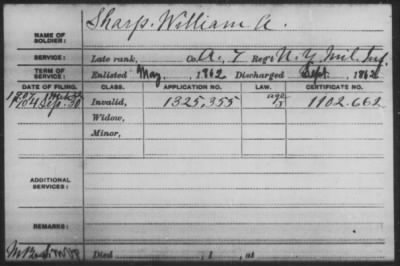 NAME OF SOLDIER: Sharp. William A.
SERVICE: Late rank, Co. A. 7 Reg't N. Y. Mil. Inf.
TERM OF SERVICE: Enlisted May, 1862 Discharged Sept., 1862
DATE OF FILING. CLASS. APPLICATION NO. LAW. CERTIFICATE NO.
1904 Sep. 30 Invalid, 1325,355 1102.662
Widow,
Minor,
ADDITIONAL SERVICES:
REMARKS:
Died , 1 , at